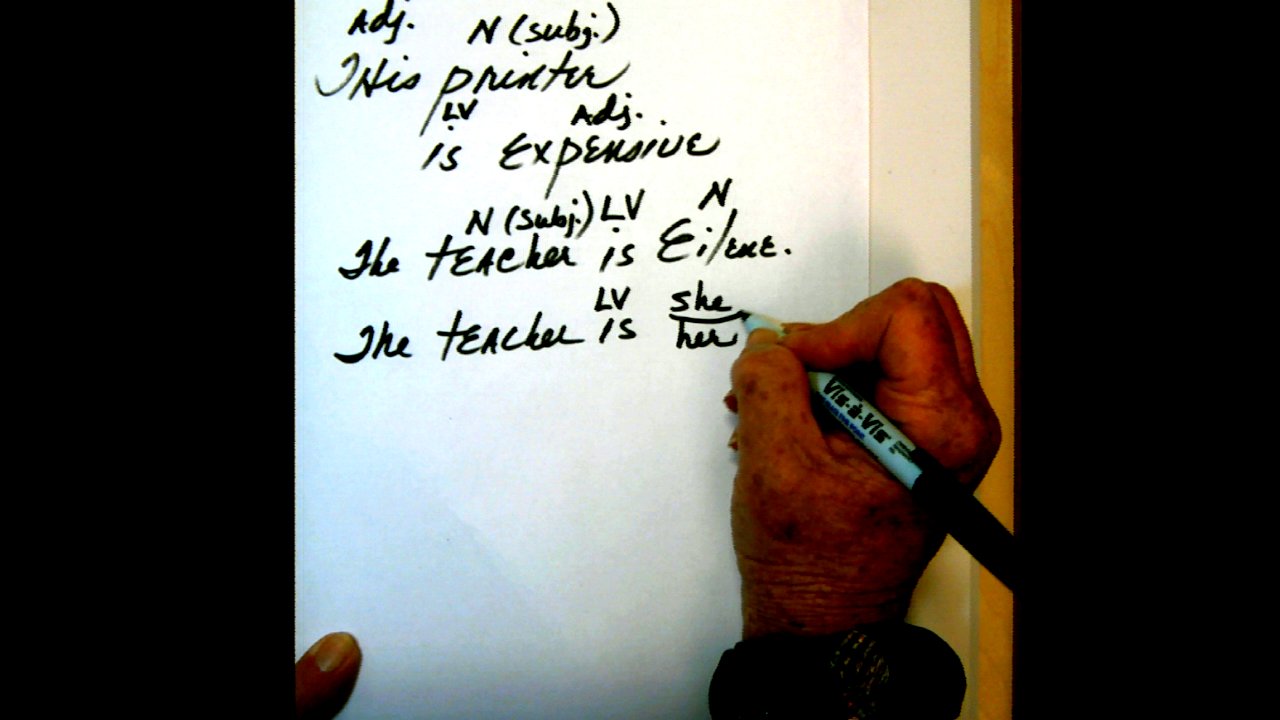 Adj. N (subj.)
This printer
LV Adj.
is Expensive
N (subj.) LV N
The teacher is Eilene.
LV she
The teacher is her
Vis-à-Vis